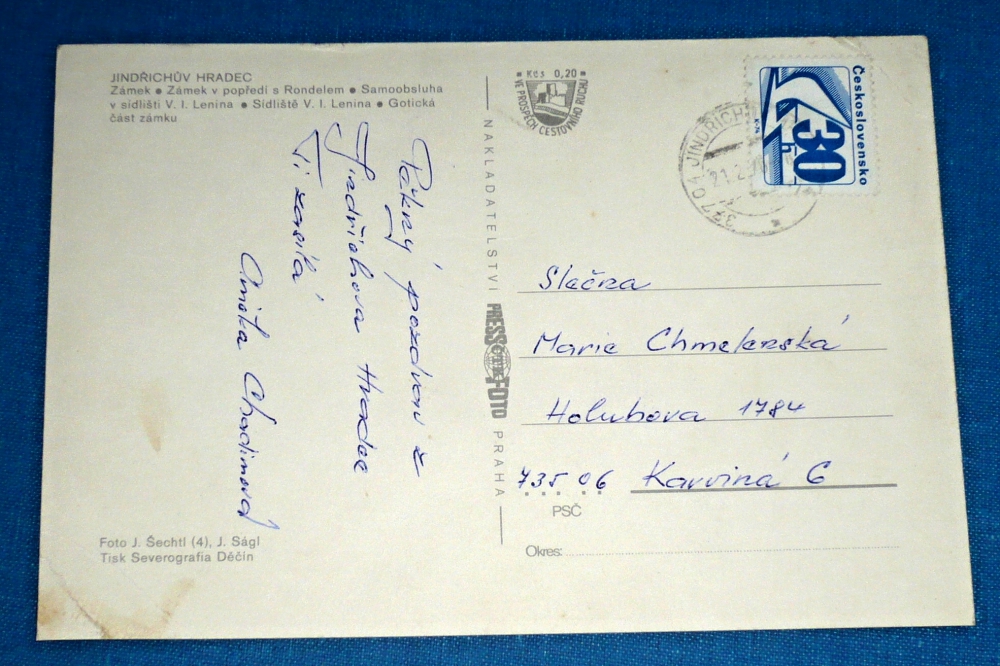 JINDŘICHŮV HRADEC
Zámek • Zámek v popředí s Rondelem • Samoobsluha
v sídlišti V. I. Lenina • Sídliště V. I. Lenina • Gotická
část zámku
Pěkný pozdrav z
Jindřichova Hradce
Ti zasílá
Chadimová
Foto J. Šechtl (4), J. Ságl
Tisk Severografia Děčín
Kčs 0,20
VE PROSPĚCH CESTOVNÍHO RUCHU
NAKLADATELSTVÍ
PRESSFOTO
PRAHA
Československo
30
h
377 01 JINDŘICH
21.2.
Slečna
Marie Chmelenská
Holubova 1784
735 06 Karviná 6
PSČ
Okres: